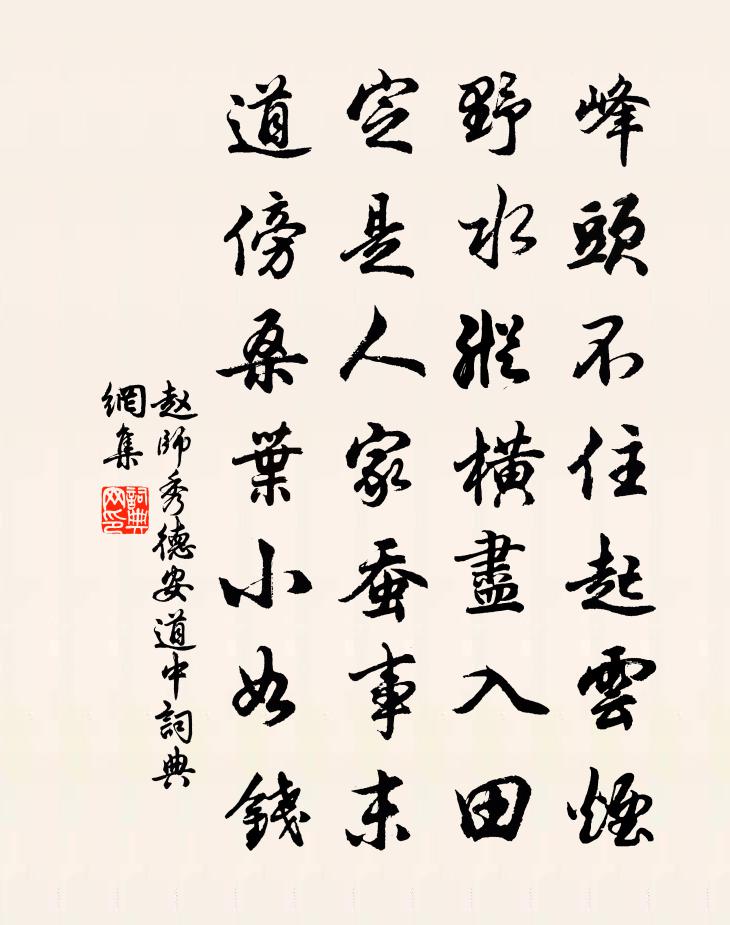 峰頭不住起雲煙
野水縱橫盡入田
定是人家蚕事未
道傍桑葉小如錢
赵師秀德安道中詞典
網集
詞典
网印